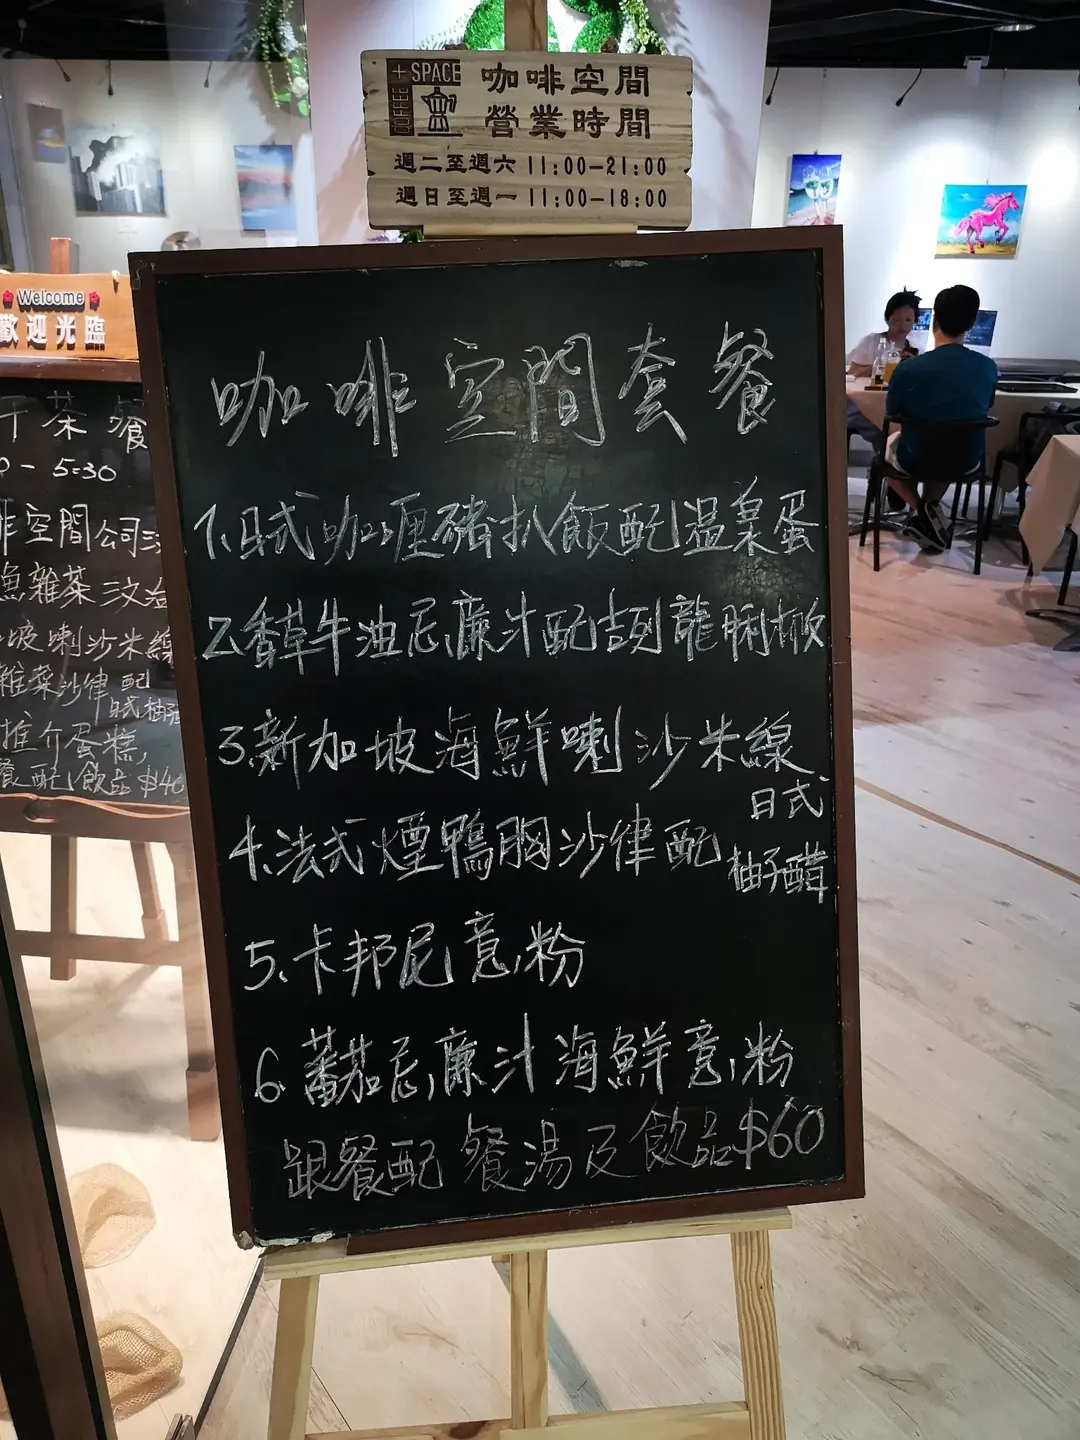 + SPACE
COFFEE
咖啡空間
營業時間
週二至週六 11:00-21:00
週日至週一 11:00-18:00
Welcome
歡迎光臨
茶餐
- 5:30
啡空間公司
雜菜三文治
坡喇沙米線
雜菜沙律 配
日式柚子
推介蛋糕,
餐配飲品 $40
咖啡空間套餐
1.日式咖喱豬扒飯配温泉蛋
2.香草牛油忌廉汁配吉列龍脷柳
3.新加坡海鮮喇沙米線
4.法式煙鴨胸沙律配
日式
柚子醋
5.卡邦尼意粉
6.蕃茄忌廉汁海鮮意粉
跟餐配 餐湯及飲品$60